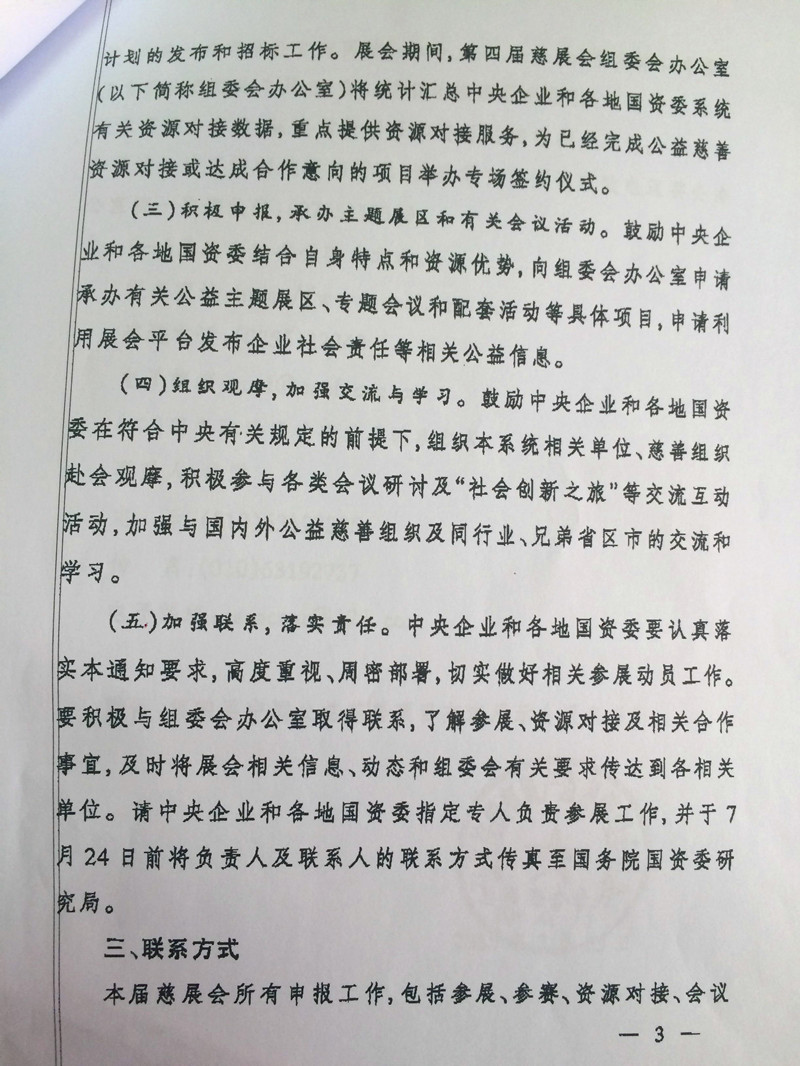 计划的发布和招标工作。展会期间,第四届慈展会组委会办公室
(以下简称组委会办公室)将统计汇总中央企业和各地国资委系统
有关资源对接数据,重点提供资源对接服务,为已经完成公益慈善
资源对接或达成合作意向的项目举办专场签约仪式。
(三)积极申报,承办主题展区和有关会议活动。鼓励中央企
业和各地国资委结合自身特点和资源优势,向组委会办公室申请
承办有关公益主题展区、专题会议和配套活动等具体项目,申请利
用展会平台发布企业社会责任等相关公益信息。
(四)组织观摩,加强交流与学习。鼓励中央企业和各地国资
委在符合中央有关规定的前提下,组织本系统相关单位、慈善组织
赴会观摩,积极参与各类会议研讨及“社会创新之旅”等交流互动
活动,加强与国内外公益慈善组织及同行业、兄弟省区市的交流和
学习。
(五)加强联系,落实责任。中央企业和各地国资委要认真落
实本通知要求,高度重视、周密部署,切实做好相关参展动员工作。
要积极与组委会办公室取得联系,了解参展、资源对接及相关合作
事宜,及时将展会相关信息、动态和组委会有关要求传达到各相关
单位。请中央企业和各地国资委指定专人负责参展工作,并于7
月24日前将负责人及联系人的联系方式传真至国务院国资委研
究局。
三、联系方式
本届慈展会所有申报工作,包括参展、参赛、资源对接、会议
— 3 —